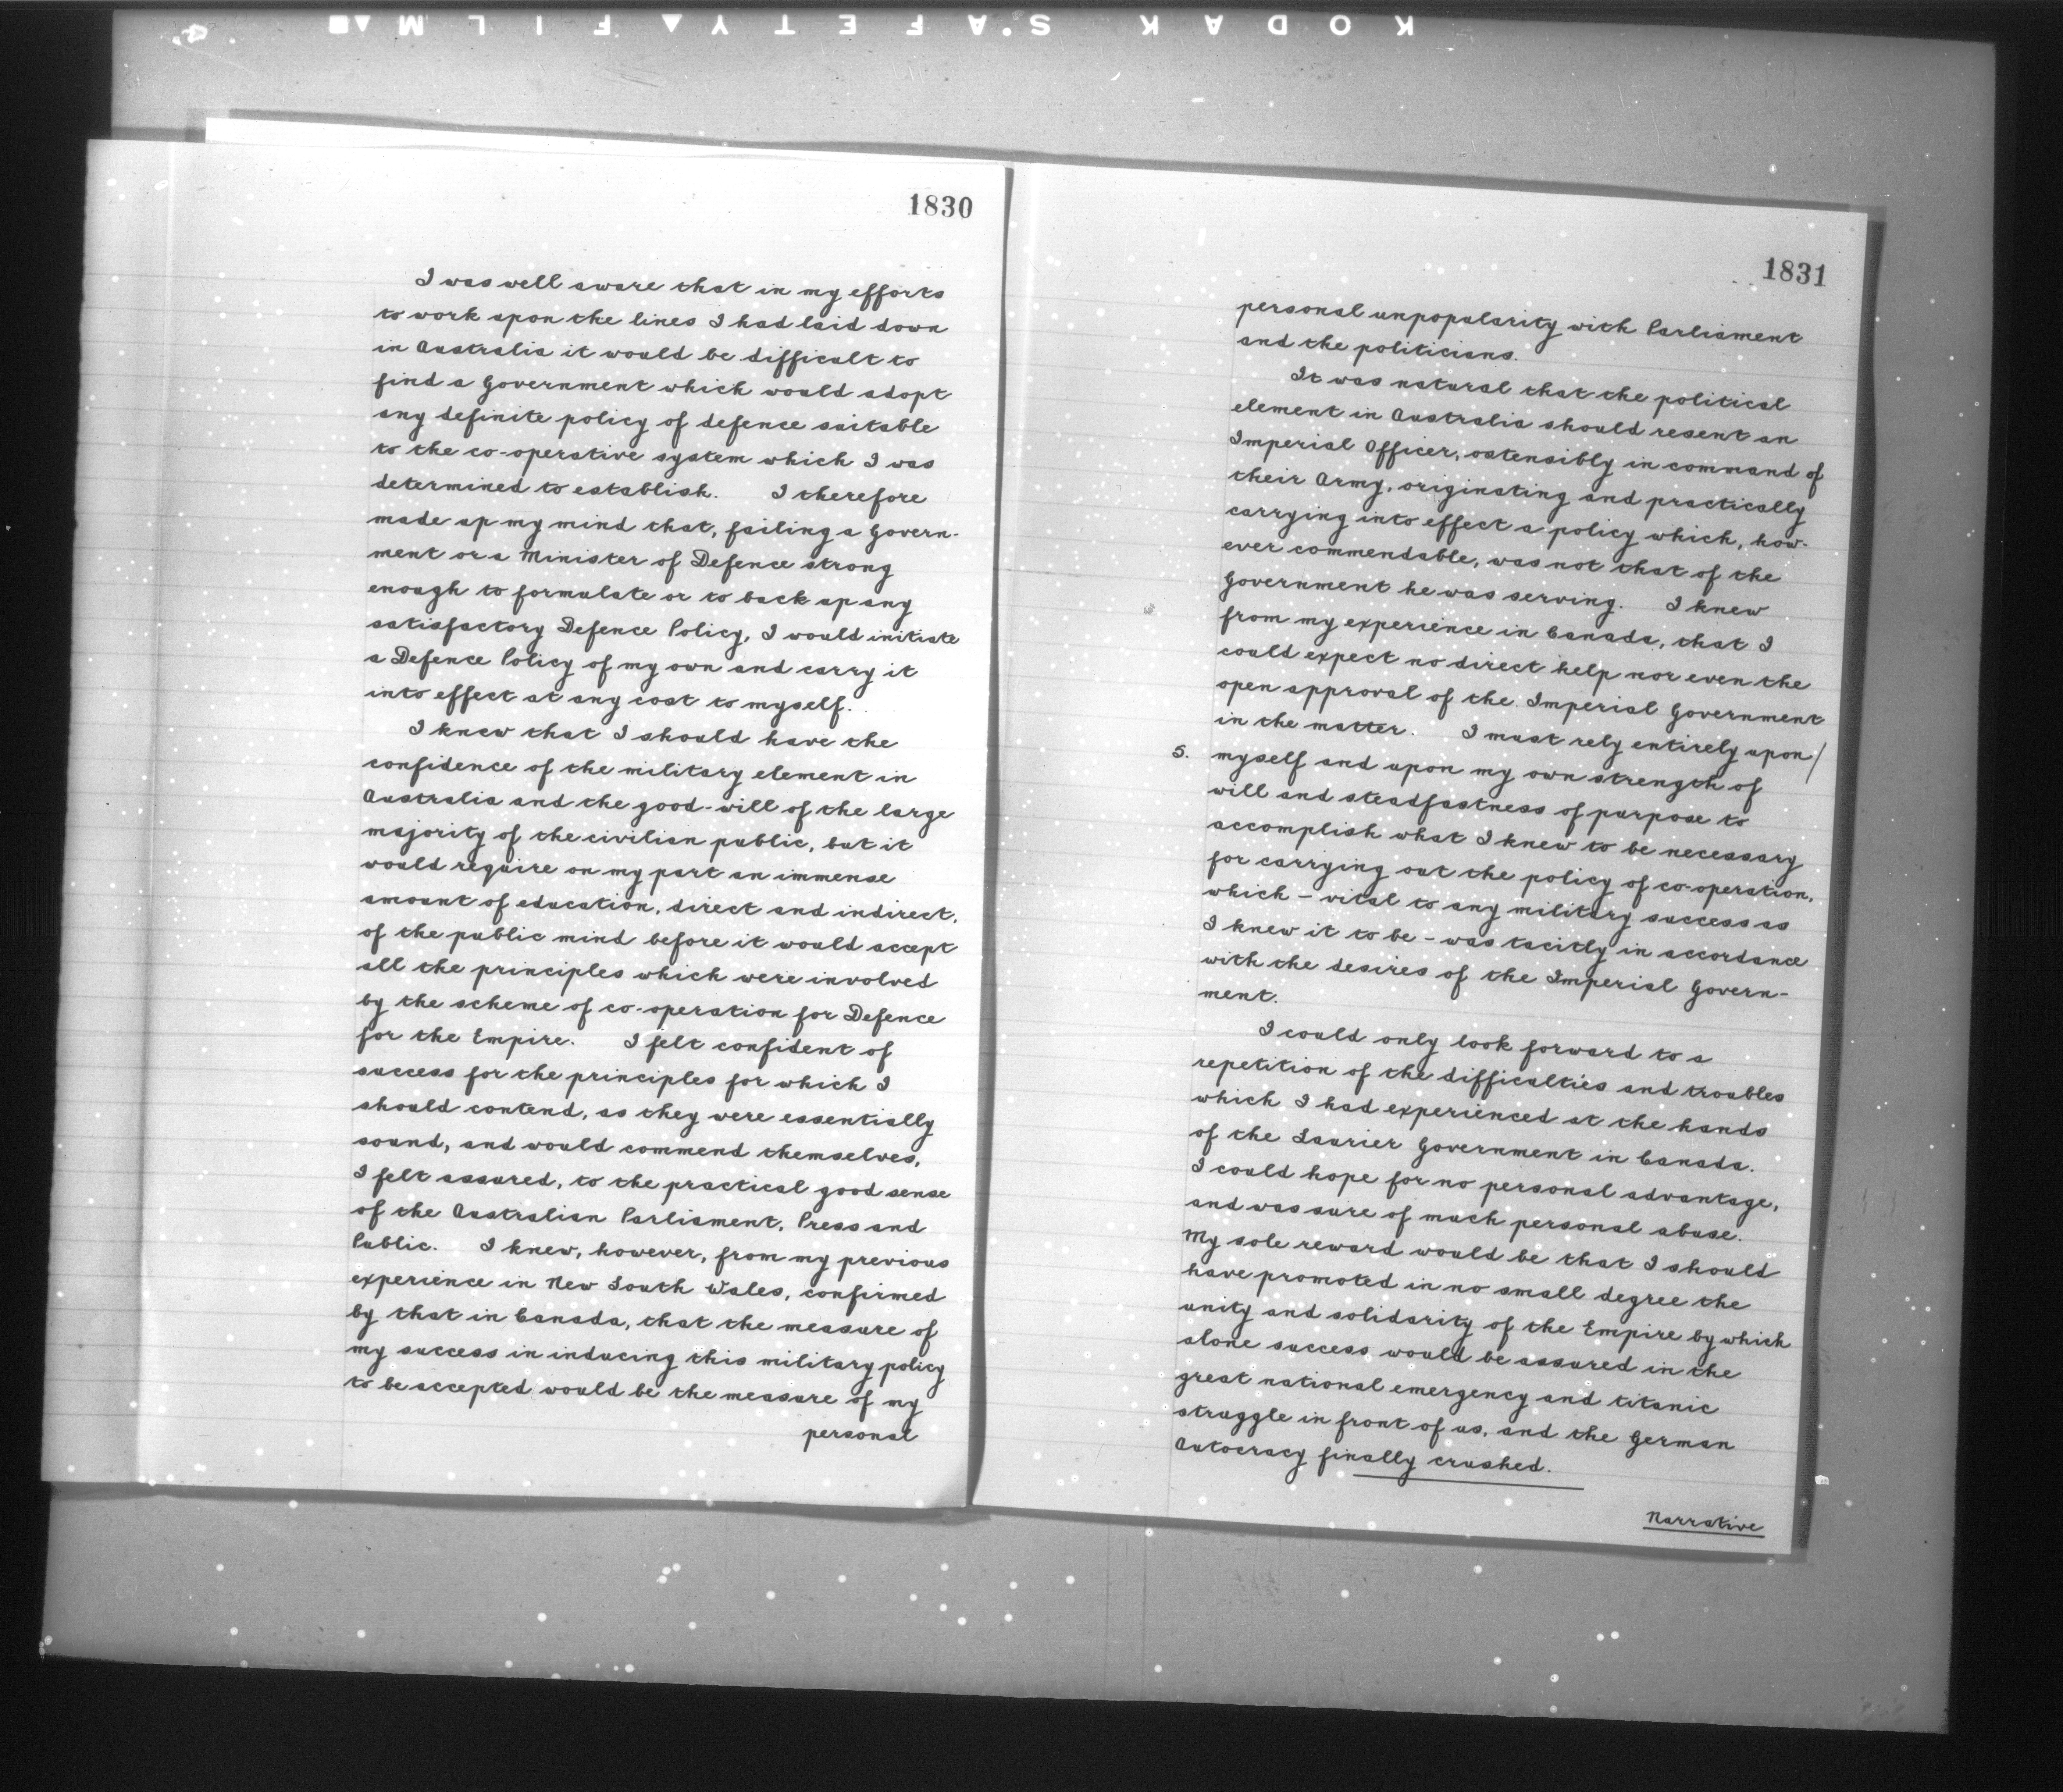 KODAK SAFETY FILM
1830
I was well aware that in my efforts
to work upon the lines I had laid down
in Australia it would be difficult to
find a Government which would adopt
any definite policy of defence suitable
to the co-operative system which I was
determined to establish. I therefore
made up my mind that, failing a Govern-
ment or a Minister of Defence strong
enough to formulate or to back up any
satisfactory Defence Policy, I would initiate
a Defence Policy of my own and carry it
into effect at any cost to myself.
I knew that I should have the
confidence of the military element in
Australia and the good-will of the large
majority of the civilian public, but it
would require on my part an immense
amount of education, direct and indirect,
of the public mind before it would accept
all the principles which were involved
by the scheme of co-operation for Defence
for the Empire. I felt confident of
success for the principles for which I
should contend, as they were essentially
sound, and would commend themselves,
I felt assured, to the practical good sense
of the Australian Parliament, Press and
Public. I knew, however, from my previous
experience in New South Wales, confirmed
by that in Canada, that the measure of
my success in inducing this military policy
to be accepted would be the measure of my
personal
1831
personal unpopularity with Parliament
and the politicians.
It was natural that the political
element in Australia should resent an
Imperial Officer, ostensibly in command of
their Army, originating and practically
carrying into effect a policy which, how-
ever commendable, was not that of the
Government he was serving. I knew
from my experience in Canada, that I
could expect no direct help nor even the
open approval of the Imperial Government
in the matter. I must rely entirely upon/
5. myself and upon my own strength of
will and steadfastness of purpose to
accomplish what I knew to be necessary
for carrying out the policy of co-operation,
which – vital to any military success as
I knew it to be – was tacitly in accordance
with the desires of the Imperial Govern-
ment.
I could only look forward to a
repetition of the difficulties and troubles
which I had experienced at the hands
of the Laurier Government in Canada.
I could hope for no personal advantage,
and was sure of much personal abuse.
My sole reward would be that I should
have promoted in no small degree the
unity and solidarity of the Empire by which
alone success would be assured in the
great national emergency and titanic
struggle in front of us, and the German
Autocracy finally crushed.
Narrative